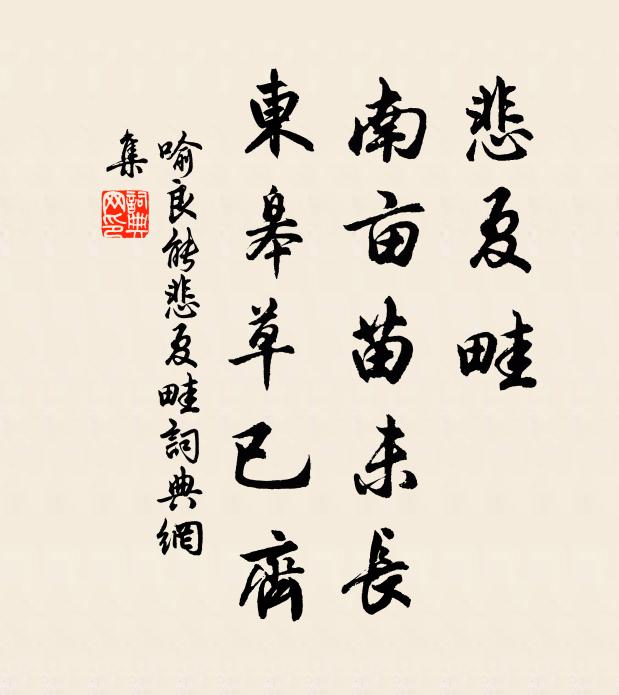 悲夏畦
南亩苗未長
東皋草已齊
喻良能悲夏畦詞典網
集
詞典
网印